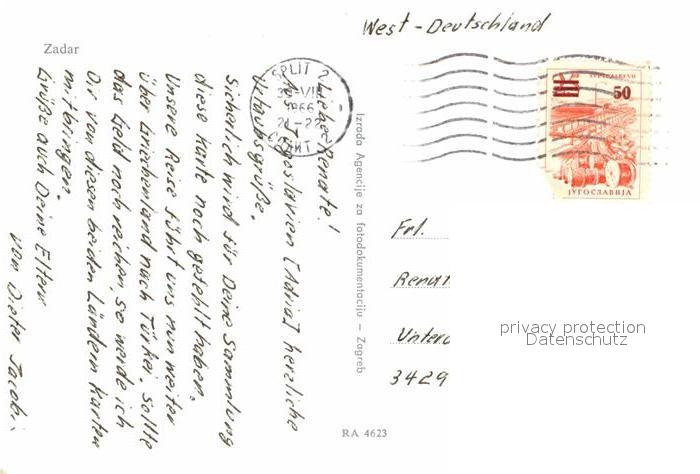 West-Deutschland
Zadar
SPLIT 2
1966
21-22
SPLIT
ЈУГОСЛАВИЈА
50
JUGOSLAVIJA
Liebe Renate!
Aus Jugoslavien [Adria] herzliche
Urlaubsgrüße.
Sicherlich wird für Deine Sammlung
diese Karte noch gefehlt haben.
Unsere Reise führt uns nun weiter
über Griechenland nach Türkei. Sollte
das Geld noch reichen, so werde ich
Dir von diesen beiden Ländern Karten
mitbringen.
Grüße auch Deine Eltern
von Dieter Jacobi
Izrada Agencije za fotodokumentaciju – Zagreb
Frl.
Renat
Untero
3429
privacy protection
Datenschutz
RA 4623